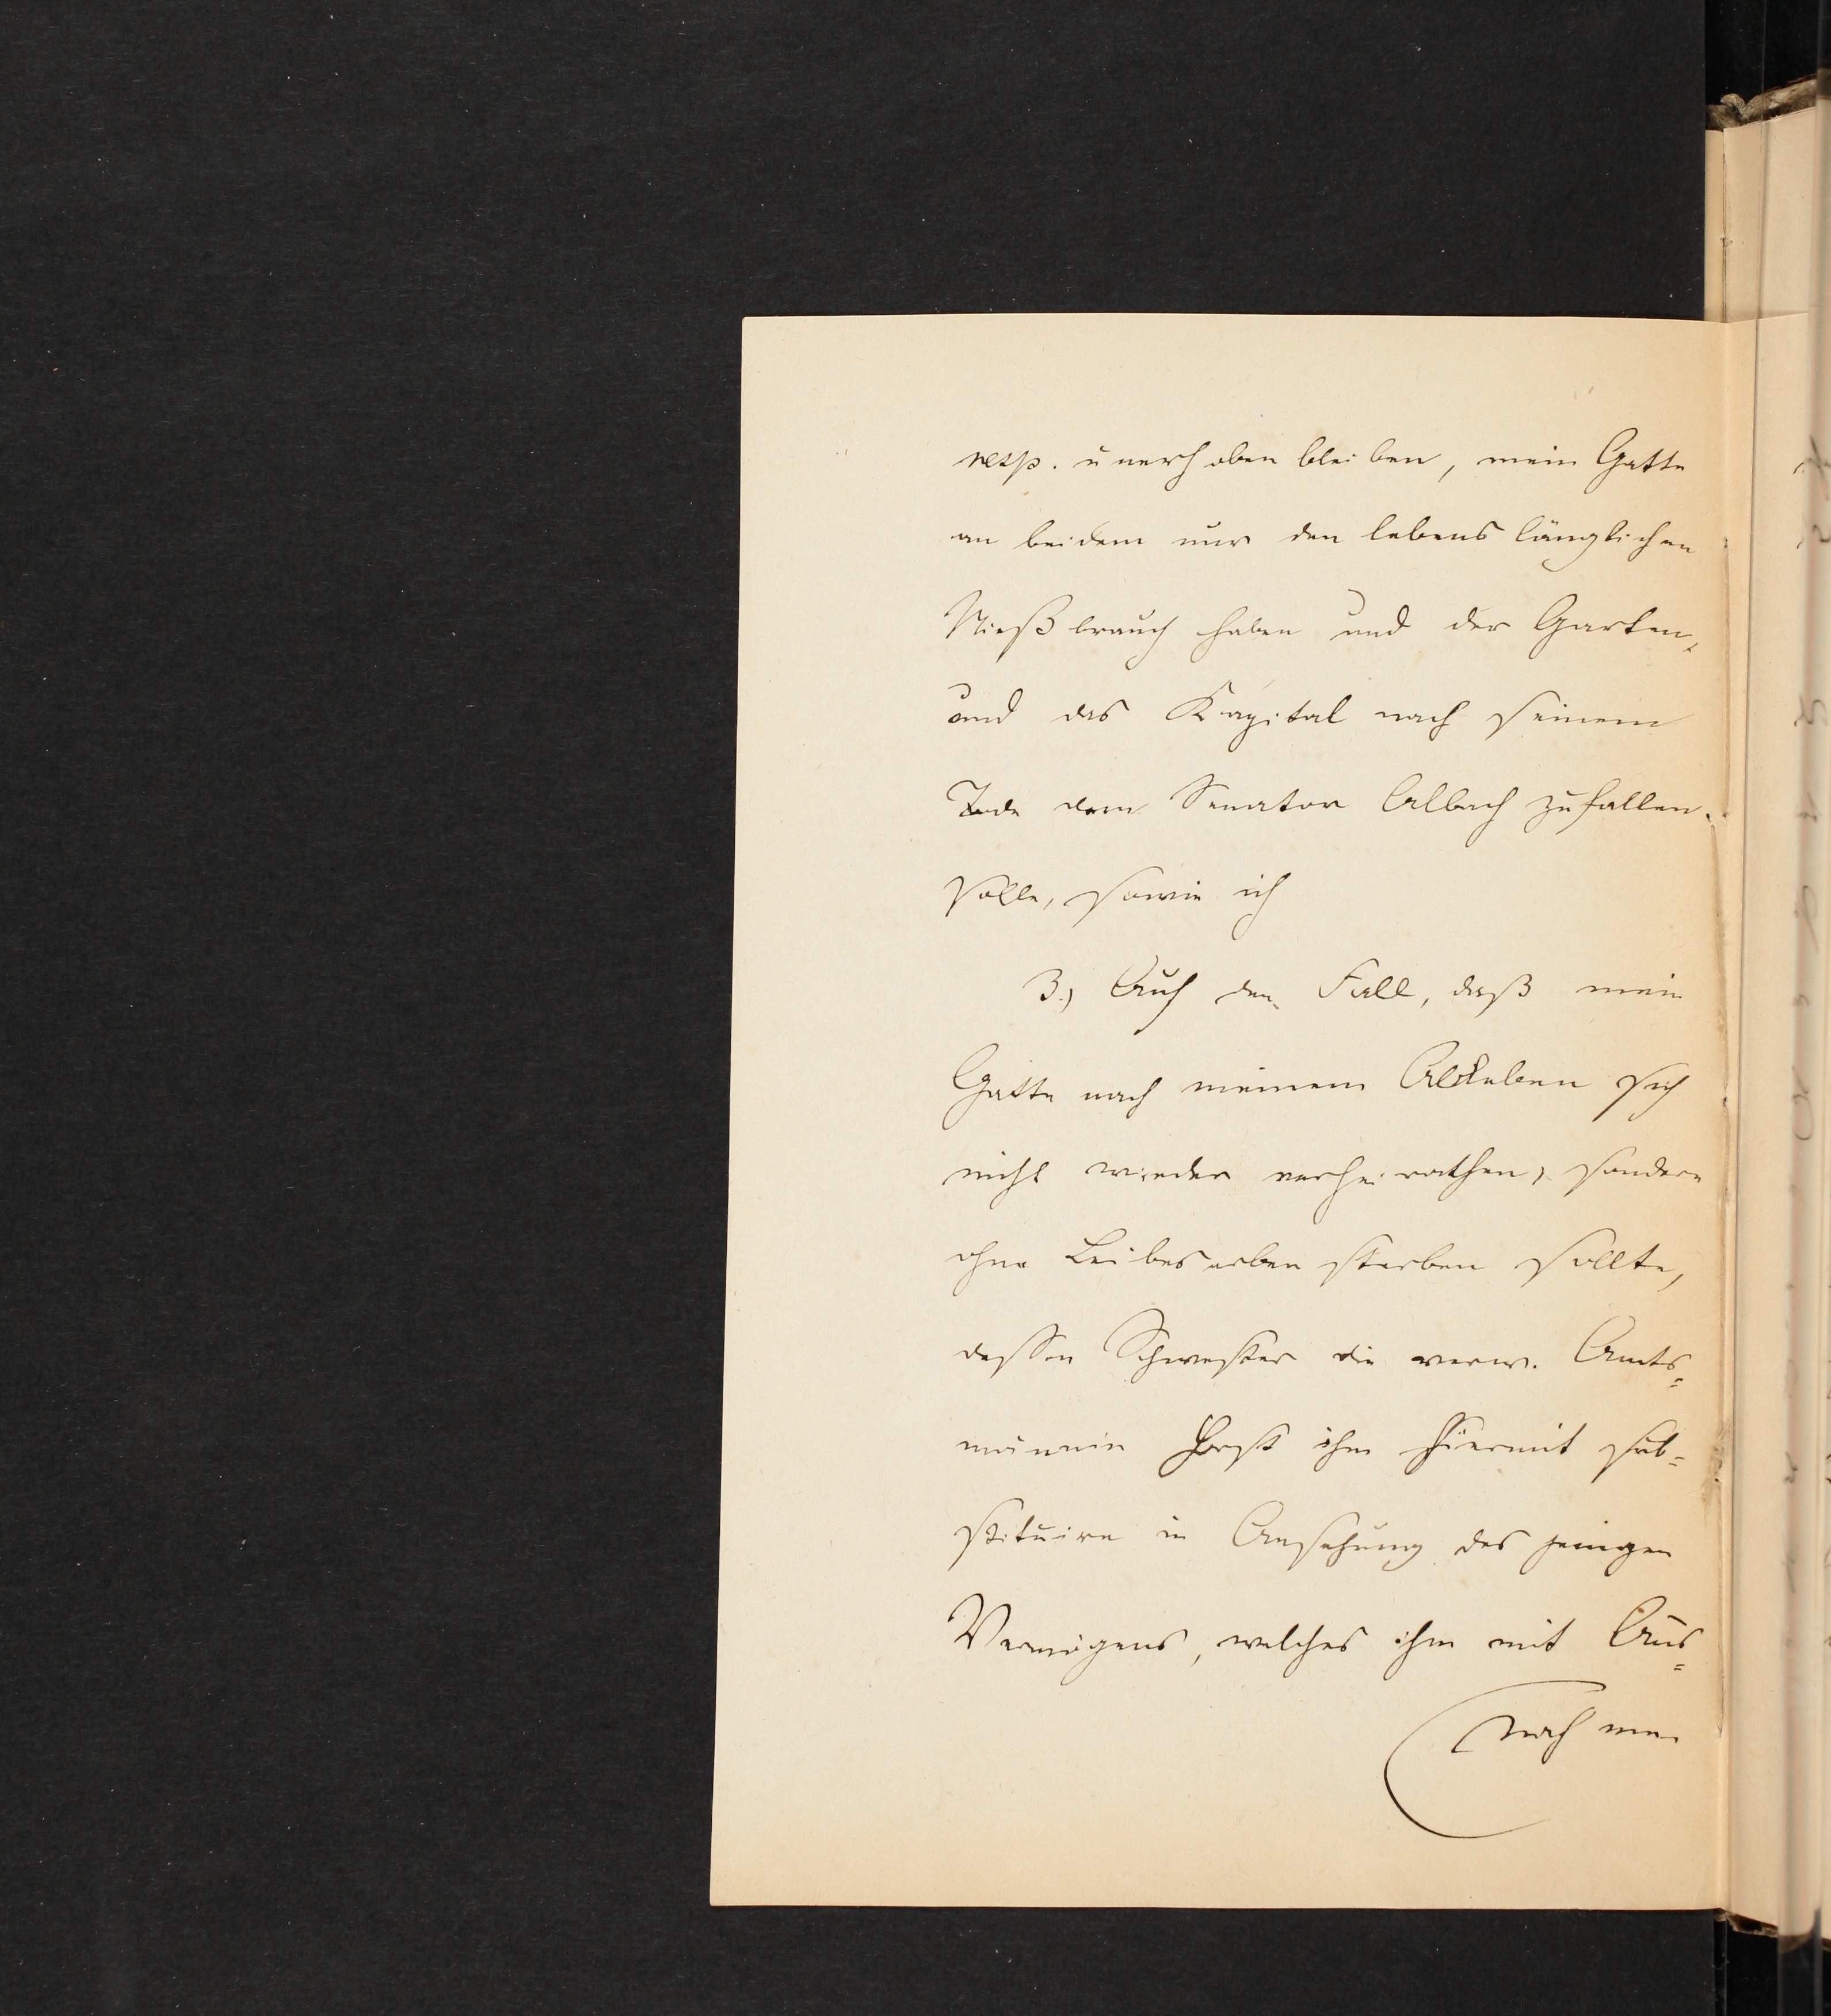 resp. unerhoben bleiben, mein Gatte
an beidem nur den lebenslänglichen
Nießbrauch haben und der Garten,
und das Kapital nach seinem
Tode dem Senator Albach zufallen
solle, sowie ich
3.) Auf den Fall, daß mein
Gatte nach meinem Ableben sich
nicht wieder verheirathen, sondern
ohne Leibeserben sterben sollte,
dessen Schwester die verw. Amts=
männin Horst ihm hiermit sub=
stituire in Ansehung desjenigen
Vermögens, welches ihm mit Aus=
nahme